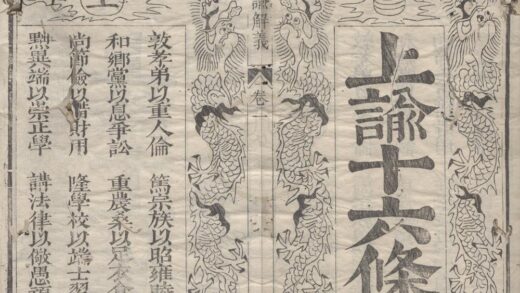 上諭十六條
諭解義
卷一
敦孝弟以重人倫 篤宗族以昭雍睦
和鄉黨以息爭訟 重農桑以足衣食
尚節儉以惜財用 隆學校以端士習
黜異端以崇正學 講法律以儆愚頑